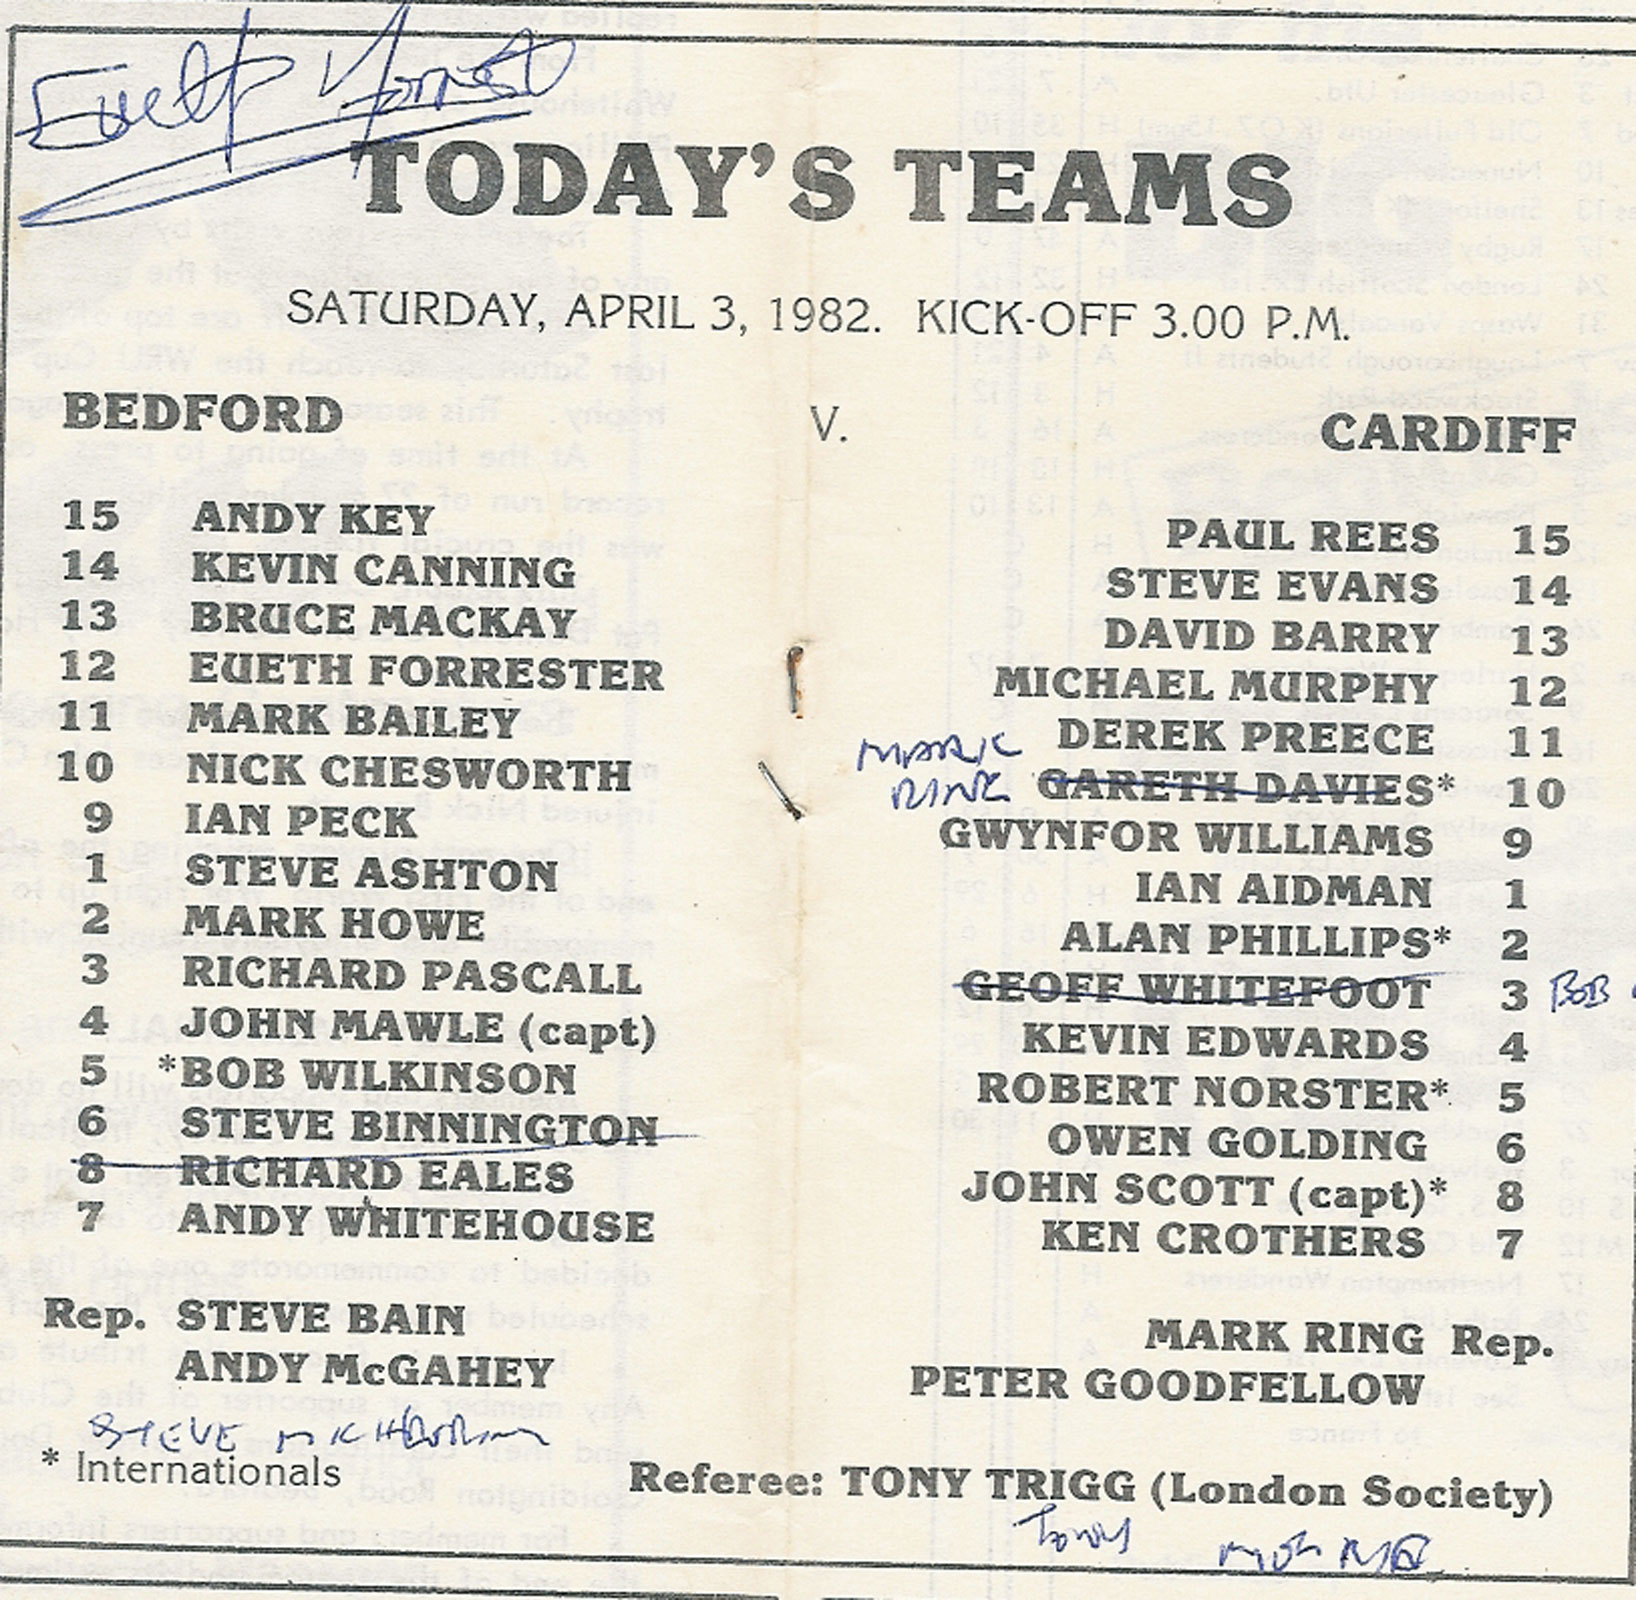 TODAY'S TEAMS
SATURDAY, APRIL 3, 1982. KICK-OFF 3.00 P.M.
BEDFORD V. CARDIFF
15 ANDY KEY
14 KEVIN CANNING
13 BRUCE MACKAY
12 EUETH FORRESTER
11 MARK BAILEY
10 NICK CHESWORTH
9 IAN PECK
1 STEVE ASHTON
2 MARK HOWE
3 RICHARD PASCALL
4 JOHN MAWLE (capt)
5 *BOB WILKINSON
6 STEVE BINNINGTON
8 RICHARD EALES
7 ANDY WHITEHOUSE
Rep. STEVE BAIN
ANDY McGAHEY
STEVE
* Internationals
PAUL REES 15
STEVE EVANS 14
DAVID BARRY 13
MICHAEL MURPHY 12
DEREK PREECE 11
MARK
RING
GARETH DAVIES* 10
GWYNFOR WILLIAMS 9
IAN AIDMAN 1
ALAN PHILLIPS* 2
GEOFF WHITEFOOT 3 BOB
KEVIN EDWARDS 4
ROBERT NORSTER* 5
OWEN GOLDING 6
JOHN SCOTT (capt)* 8
KEN CROTHERS 7
MARK RING Rep.
PETER GOODFELLOW
Referee: TONY TRIGG (London Society)